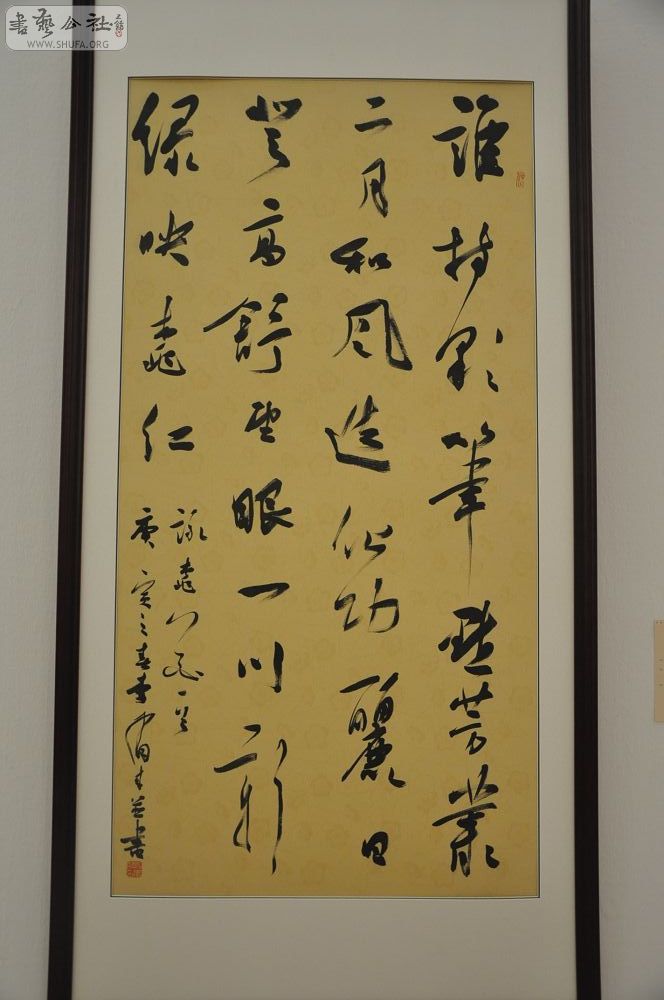 書藝公社
WWW.SHUFA.ORG
誰持彩筆點芳叢
二月和風造化功麗日
登高舒望眼一川新
綠映桃紅
詠桃一首
庚寅之春李并書